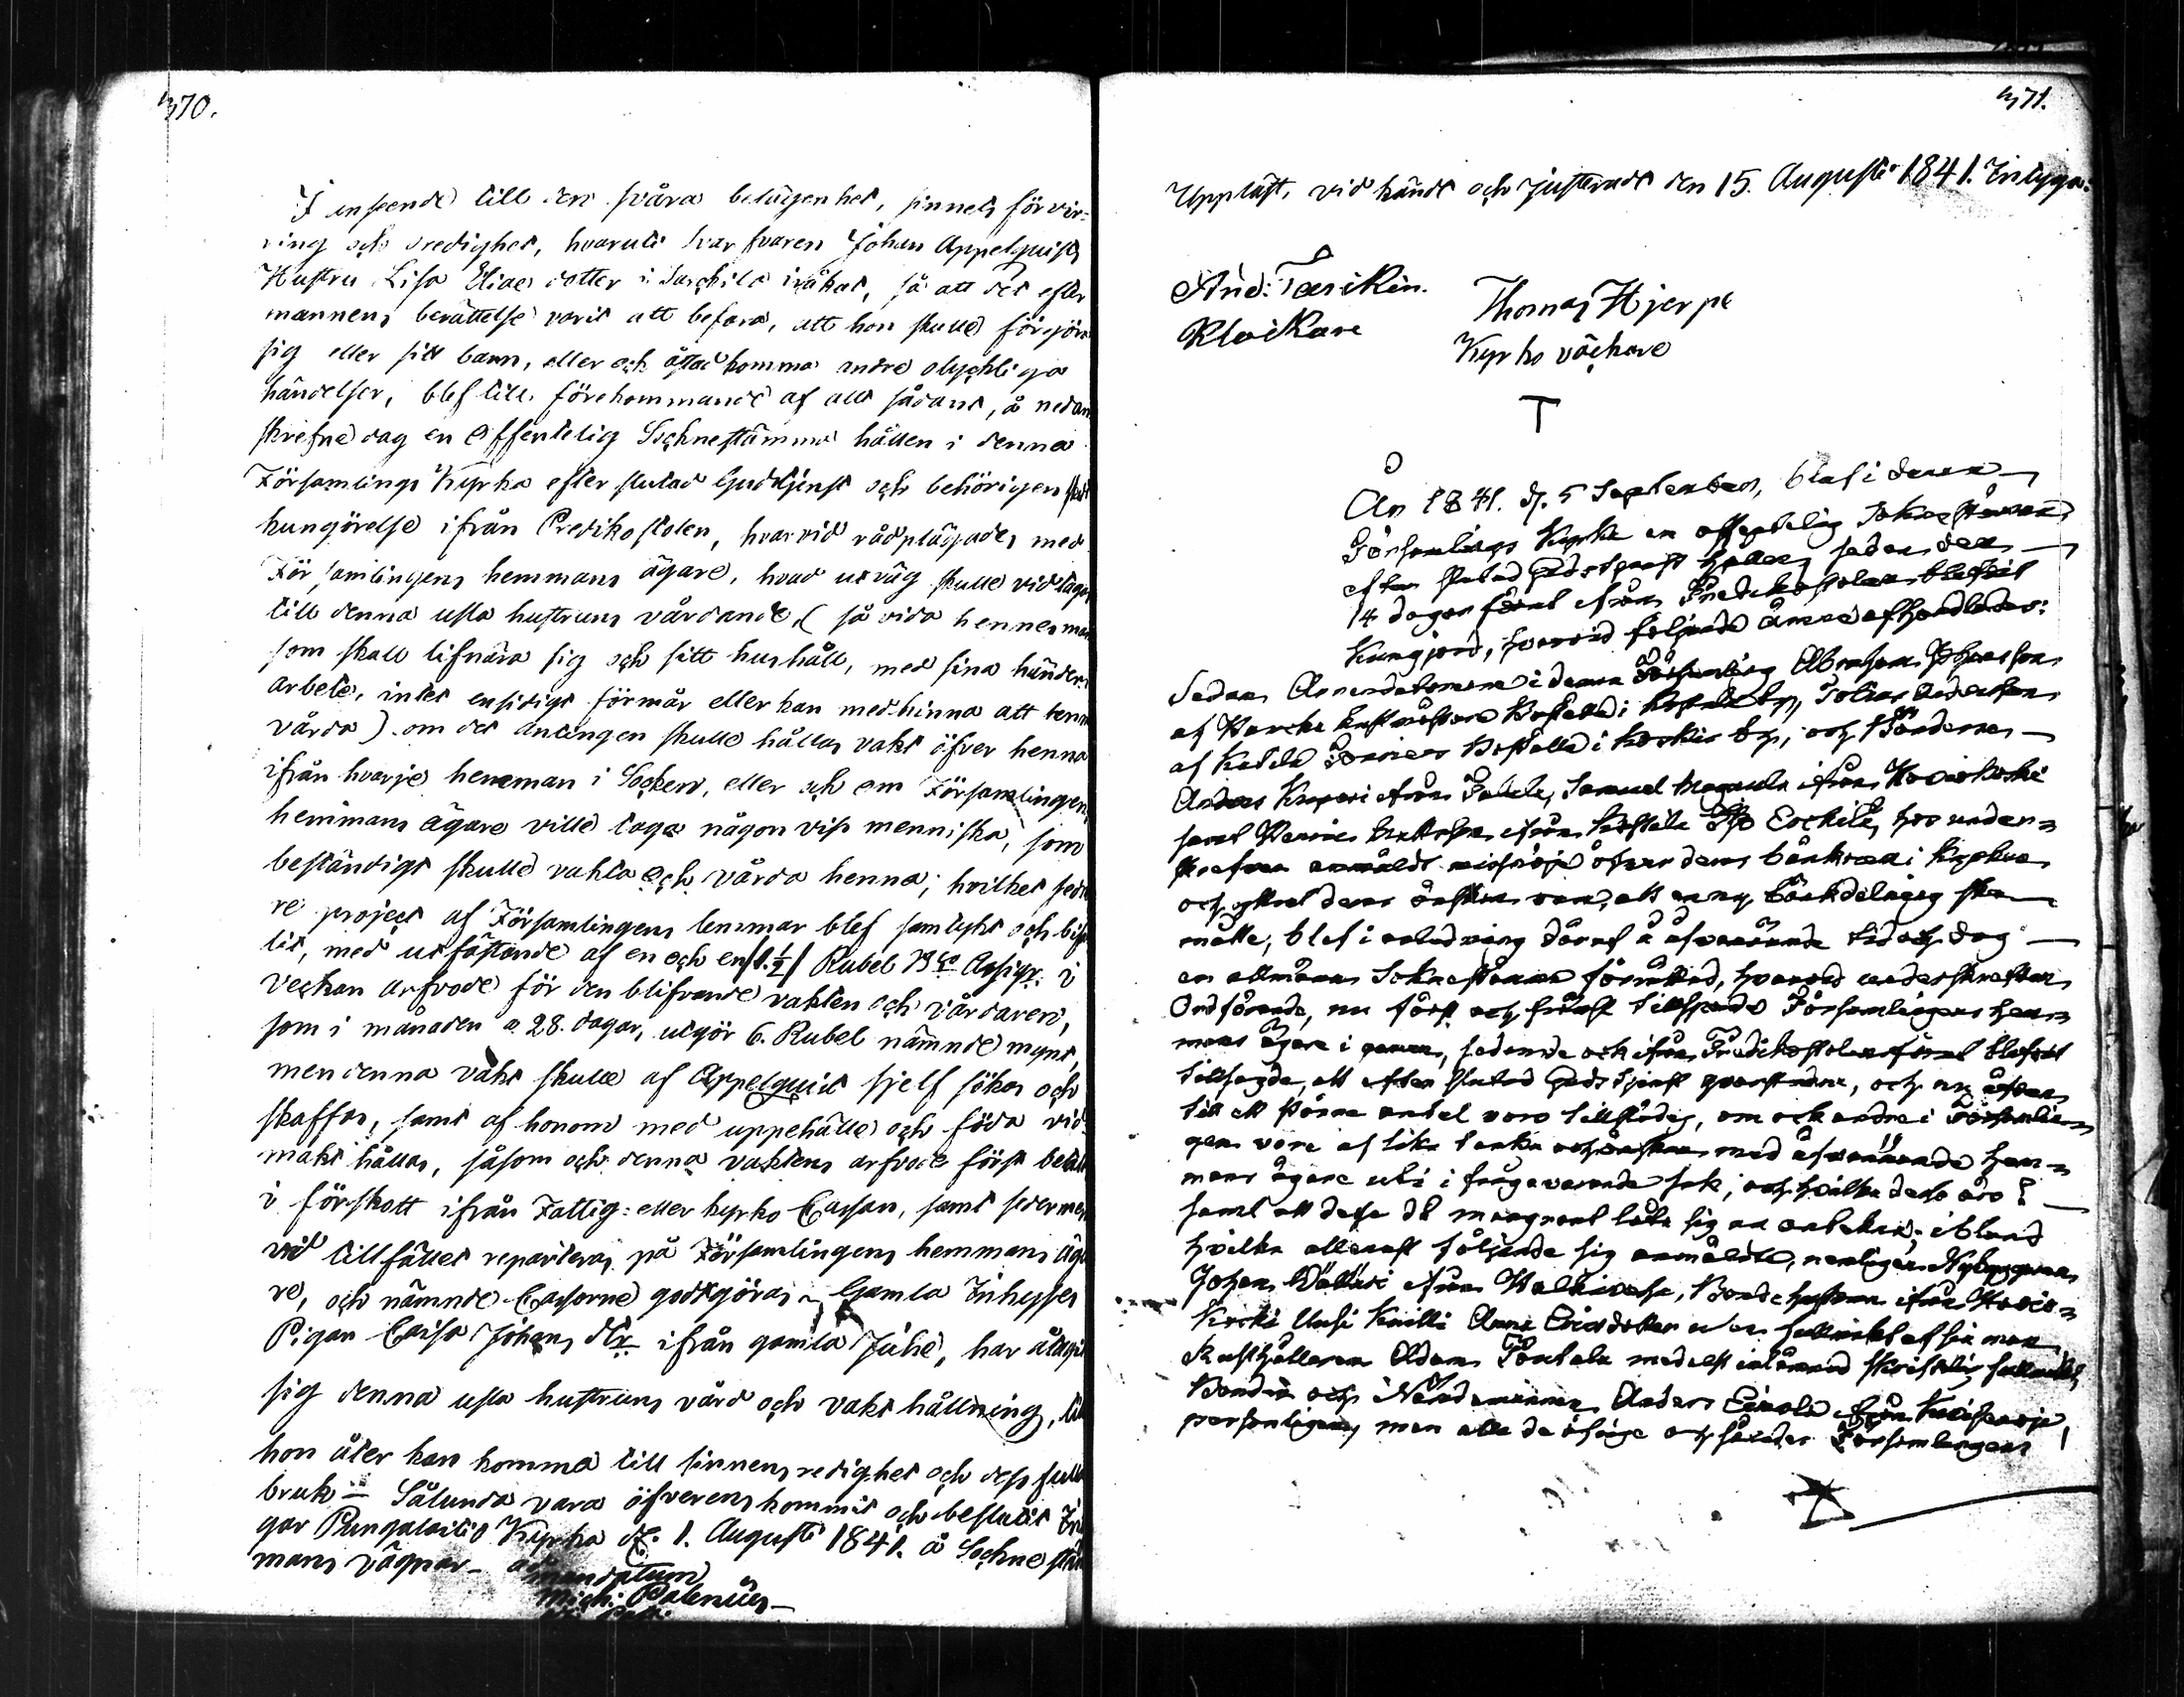 370.
I anseende till den svåra belägenhet, sinnets förvir-
ring och oredighet, hvaruti svarfvaren Johan Appelquists
Hustru Lisa Elias dotter i råkat, så att det efter
mannens berättelse varit att befara, att hon skulle förgöra
sig eller sitt barn, eller och åstadkomma andre olyckliga
händelser, blef till förekommande af allt sådant, å nedan
skrefne dag en offentelig Socknestämma hållen i denna
Församlings Kyrka efter slutad Gudstjenst och behörigen skedd
kungörelse ifrån Predikostolen, hvarvid rådplägades med
Församlingens hemmans ägare, hvad utväg skulle vidtagas
till denna usla hustruns vårdande, (så vida hennes man
som skall lifnära sig och sitt hushåll, med sina händers
arbete, intet ensidigt förmår eller kan medhinna att henne
vårda). om det antingen skulle hållas vakt öfver henne
ifrån hvarje hemman i Socken, eller och om Församlingens
hemmans ägare ville taga någon viss menniska, som
beständigt skulle vakta och vårda henne; hvilket sedna-
re project af Församlingens lemmar blef samtykt och bifal-
lit, med utfästande af en och en /1.½/ Rubel B:co Assign. i
veckan arfvode för den blifvande vakten och vårdaren,
som i månaden a 28. dagar, utgör 6. Rubel nämnde mynt,
men denna vakt skulle af Appelquist sjelf sökas och
skaffas, samt af honom med uppehälle och föda vid-
makt hållas, såsom och denna vaktens arfvode först betalas
i förskott ifrån Fattig- eller kyrko Cassan, samt sedermera
vid tillfället reparteras på Församlingens hemmans äga-
re, och nämnde Cassorne godtgöras. Gamla Inhyses
Pigan Caisa Johans dtr ifrån gamla, har åtagit
sig denna usla hustruns vård och vakt hållning, till
hon åter kan komma till sinnens redighet och dess fulla
bruk — Sålunda vara öfverens kommit och beslutit
gar Pungalaitio Kyrka d. 1. Augusti 1841. å Sockne stäm
mans vägnar — ad mandatum
Mich:
371.
Uppläst, vid kändt och justeradt den 15. Augusti 1841. Intyga:
And: Tarikin. Thomas Hjerpe
Klockare Kyrko väckare
T
År 1841. d. 5 September, blef i denna
Församlings Kyrka en offentelig Sokne stämma
efter slutad Gudstjenst hållen, sedan den
14 dagar förut ifrån Predikostolen blefvit
Kungjord, hvarvid följande ämne afhandlades:
Sedan Arrendatorerne i denna Församling Abraham Johansson
af Boställe i by, Tobias Andersson
af Boställe i by, och Bönderne
Anders ifrån Samuel ifrån
samt ifrån hos under=
skrefven anmäldt missnöje öfver deras bänkrum i kyrkan
och yttrat deras önskan vara, att en ny bänkdelning ske
måtte, blef i anledning däraf å ofvannämnde tid och dag
en allmänn Sokne stämma förrättad, hvarvid underskrefven
Ordförande, nu först och främst tillsporde Församlingens hem=
mans ägare i gemen, sedan de ock ifrån Predikostolen förut blefvit
tillsagde, att efter slutad Gudstjenst qvarstadna, och nu äfven
till ett större antal voro tillstädes, om ock andre i Församlin=
gen vore af lika tanka och önskan med ofvannämnde hem=
mans ägare uti i frågavarande sak, och hvilka desse äro?
samt att desse då mangrant låta sig an antekna; ibland
hvilka allenast följande sig anmälde, nemligen Nybyggaren
Johan ifrån, Bonde hustrun ifrån
Anna Ericsdotter fullmakt af sin man
Rusthållaren Adam medelst inlämnad skriftelig fullmakt,
Bonden och Nämdemannen Anders ifrån
personligen, men alla de öfrige och således Församlingens